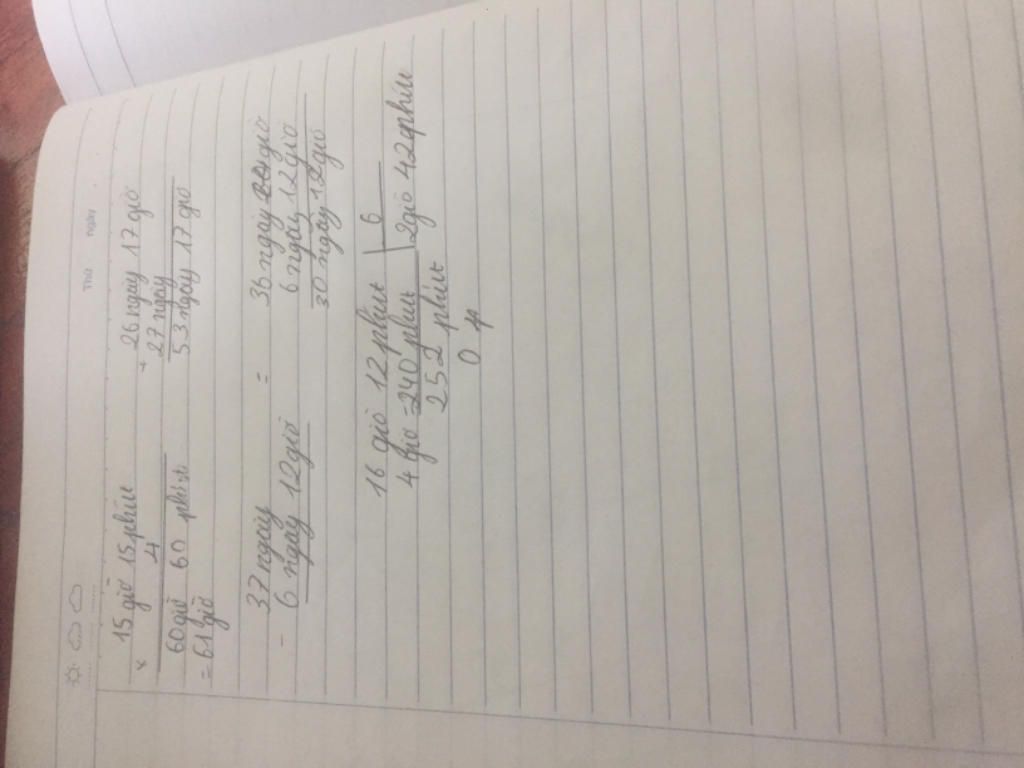 Thứ Ngày
15 giờ 15 phút + 26 ngày 17 giờ
× 4 27 ngày
60 giờ 60 phút 53 ngày 17 giờ
= 61 giờ
37 ngày = 36 ngày giờ
- 6 ngày 12 giờ 6 ngày 12 giờ
30 ngày 12 giờ
16 giờ 12 phút 6
4 giờ = 240 phút 2 giờ 42 phút
252 phút
0